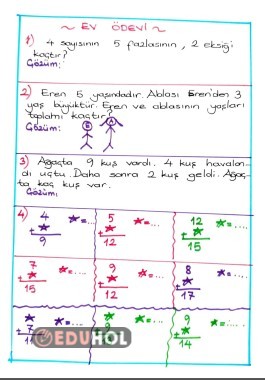 ~ EV ÖDEVİ ~
1) 4 sayısının 5 fazlasının, 2 eksiği
kaçtır?
Çözüm:
2) Eren 5 yaşındadır. Ablası Eren'den 3
yaş büyüktür. Eren ve ablasının yaşları
toplamı kaçtır?
Çözüm:
E A
3) Ağaçta 9 kuş vardı. 4 kuş havalan
dı uçtu. Daha sonra 2 kuş geldi. Ağaç
ta kaç kuş var.
Çözüm:
4) 4 ★=... 5 ★=.... 12 ★=.....
+ ★ + ★ + ★
9 12 15
7 ★=.... 9 ★=.... 8 ★=....
+ ★ + ★ + ★
15 12 17
★ ★=... ★ ★=.... 9 ★=....
+ 7 9 + ★
14
EDUHOL